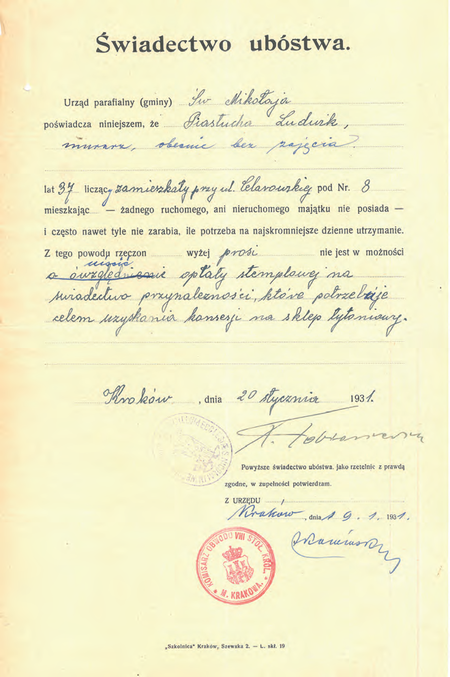 Świadectwo ubóstwa.
Urząd parafialny (gminy) Św Mikołaja
poświadcza niniejszem, że Piastucha Ludwik,
murarz, obecnie bez zajęcia.
lat 37 liczący zamieszkały przy ul. Celarowskiej pod Nr. 8
mieszkając — żadnego ruchomego, ani nieruchomego majątku nie posiada —
i często nawet tyle nie zarabia, ile potrzeba na najskromniejsze dzienne utrzymanie.
Z tego powodu rzeczon wyżej prosi nie jest w możności
opłaty stemplowej na
świadectwo przynależności, które potrzebuje
celem uzyskania koncesji na sklep tytoniowy.
Kraków, dnia 20 stycznia 1931.
Powyższe świadectwo ubóstwa, jako rzetelnie z prawdą
zgodne, w zupełności potwierdzam.
Z URZĘDU
Kraków, dnia 19.1.1931.
KOMISARZ OBWODU VIII STOŁ. KRÓL.
M. KRAKOWA.
„Szkolnica" Kraków, Szewska 2. — L. skł. 19